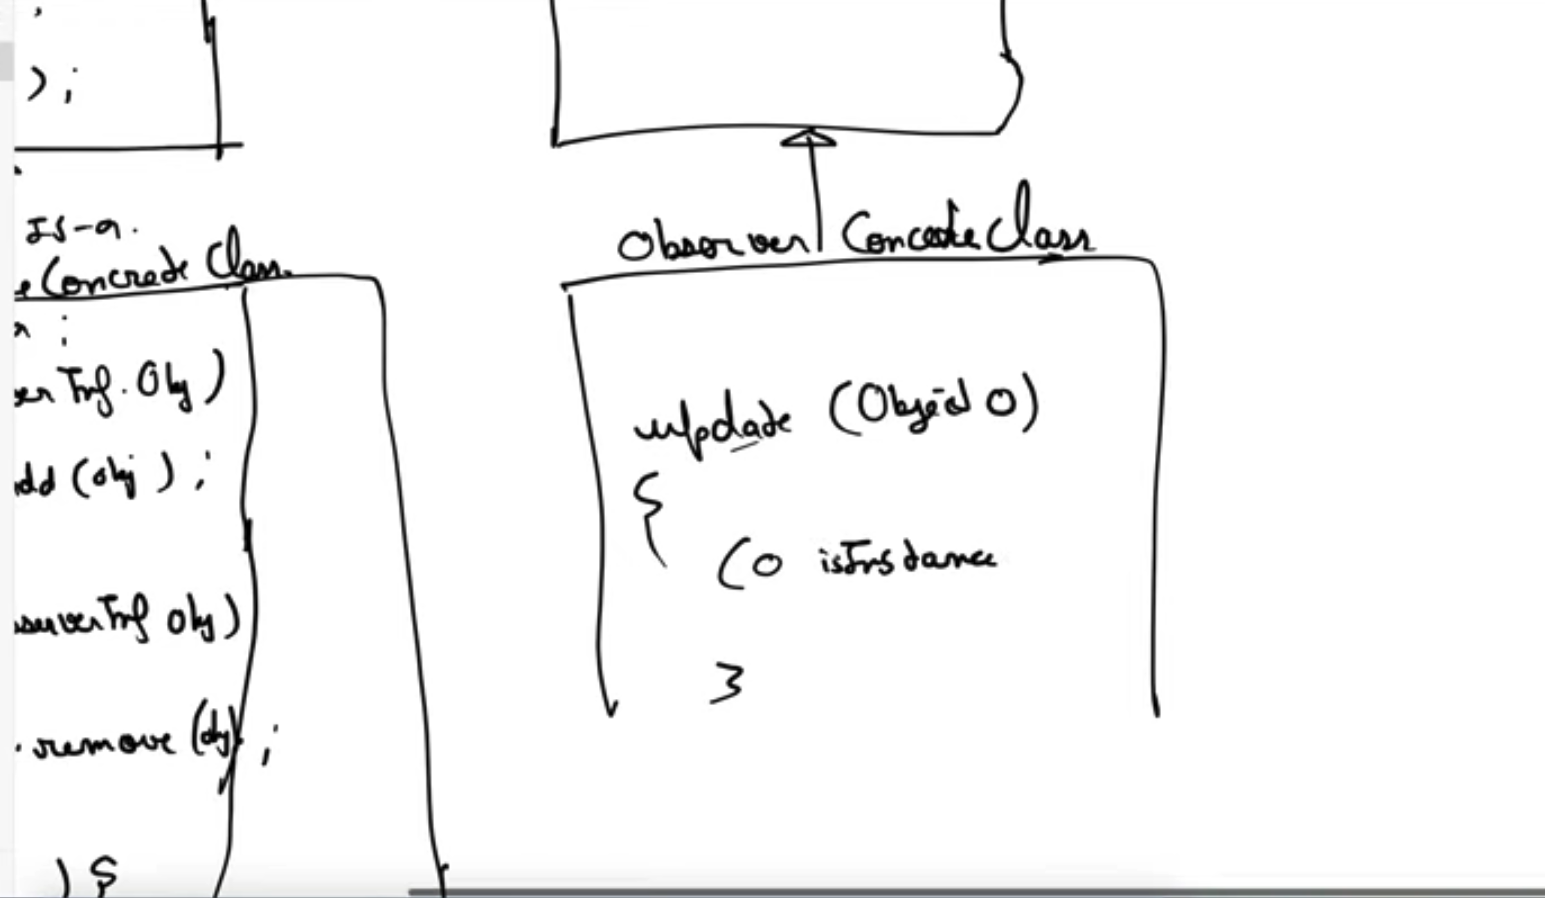 );
IS-a.
Concrete Class.
Inf. Obj)
add (obj);
serverInf obj)
.remove (obj);
) {
Observer Concrete Class
update (Object O)
{
(O isInstance
}